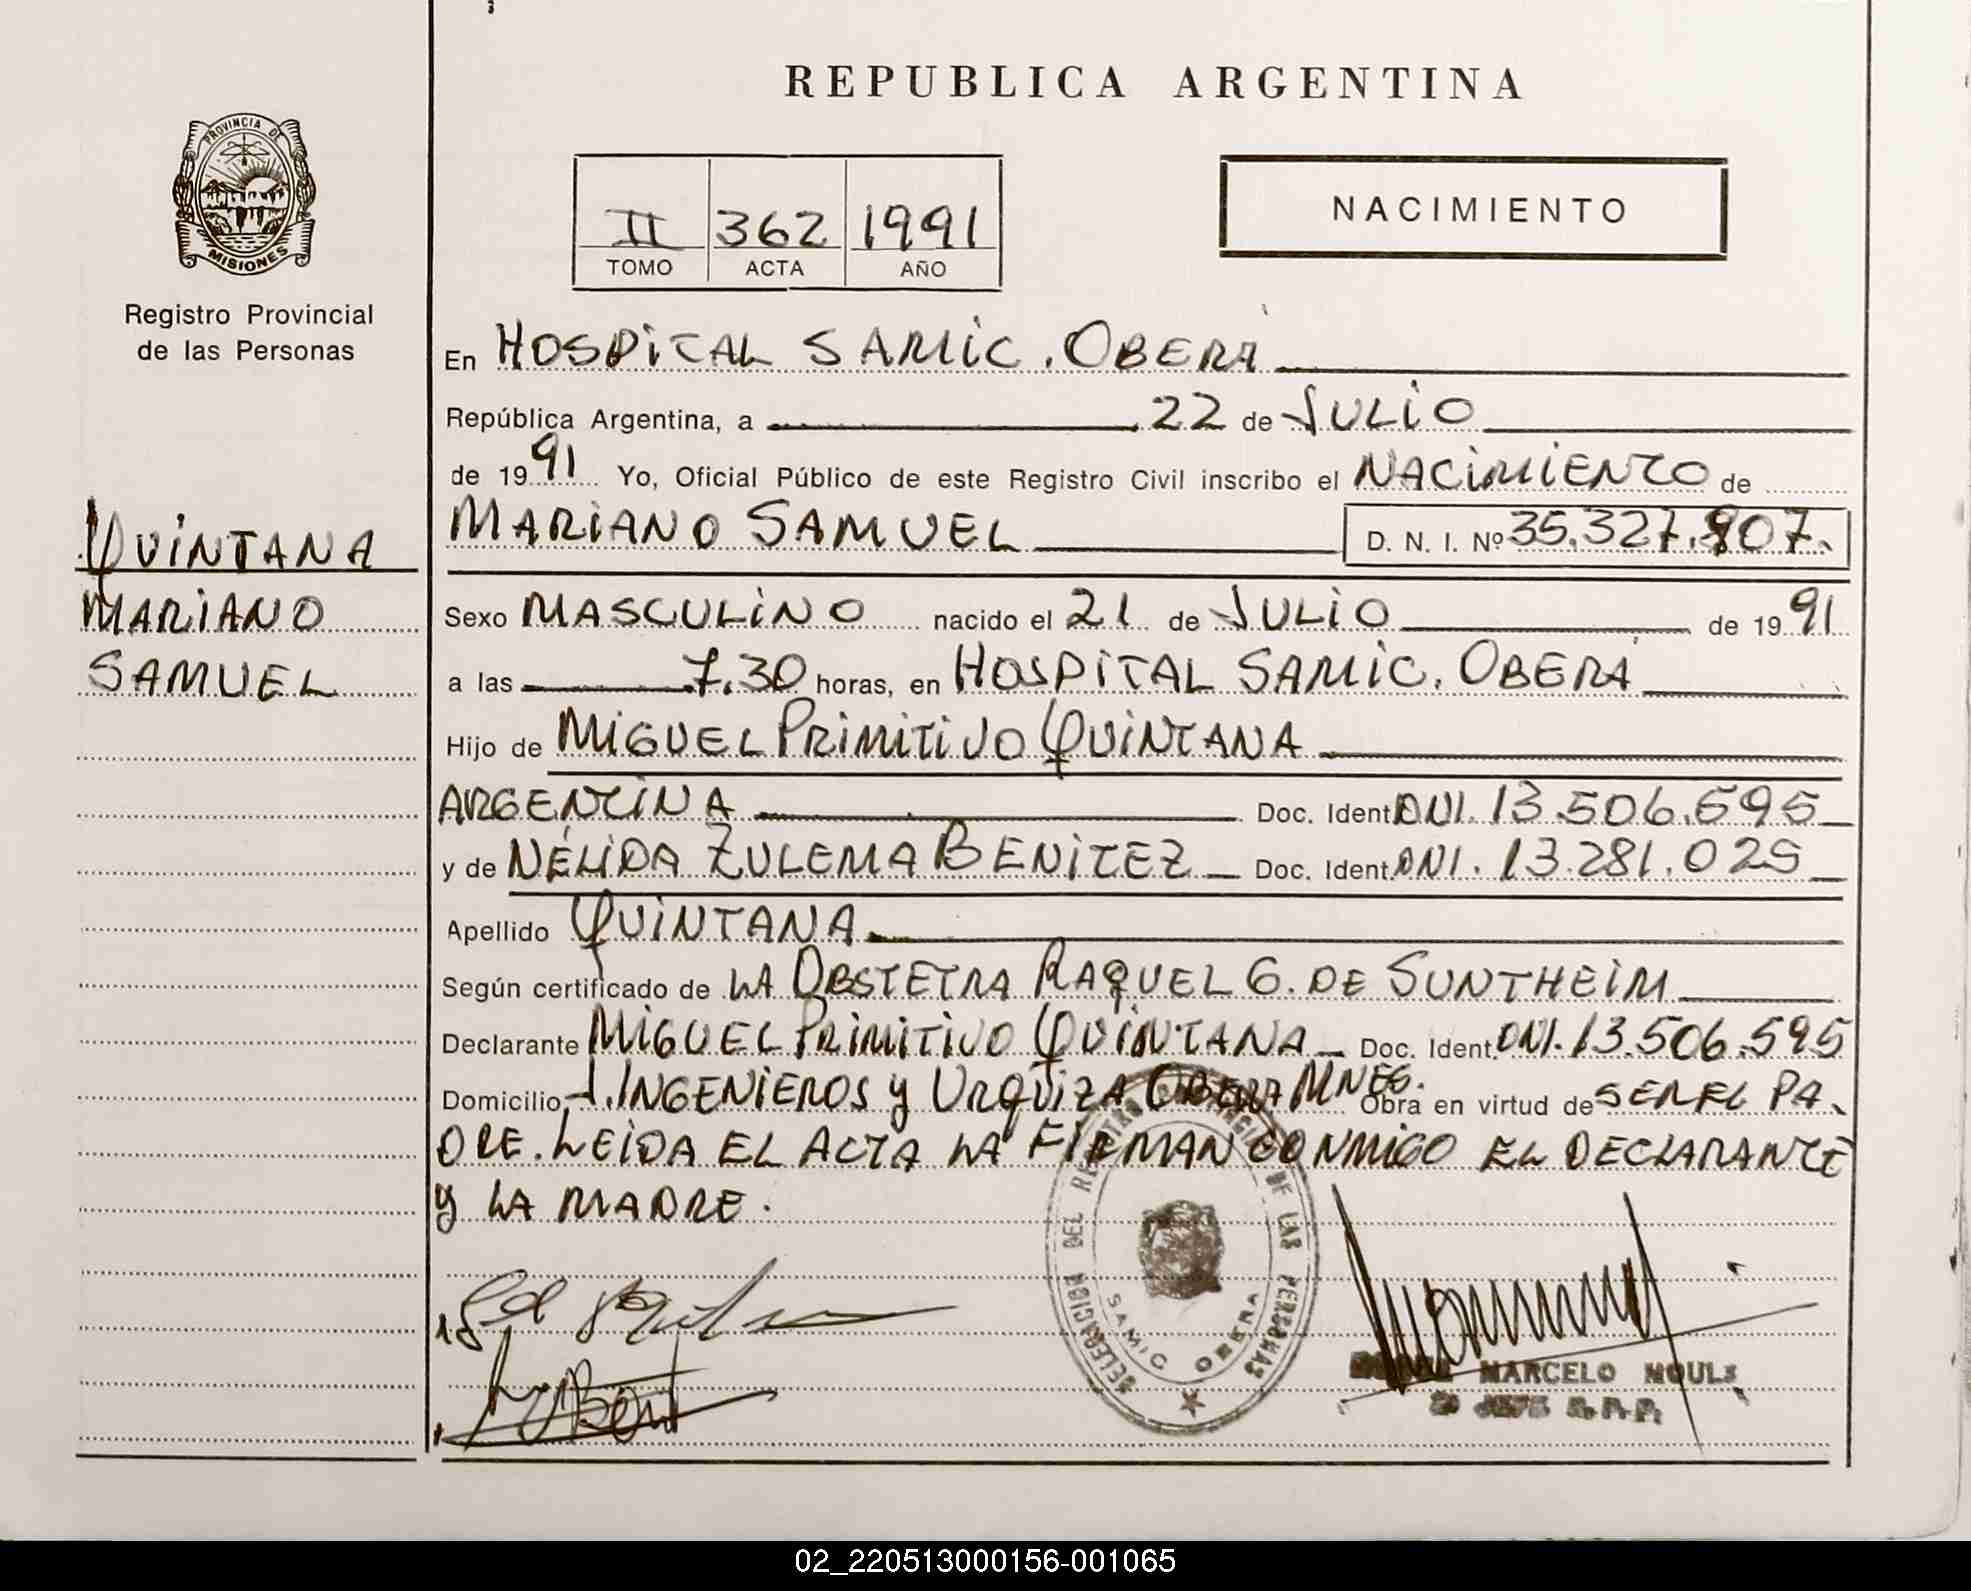 REPUBLICA ARGENTINA
PROVINCIA DE
MISIONES
Registro Provincial
de las Personas
II 362 1991
TOMO ACTA AÑO
NACIMIENTO
QUINTANA
MARIANO
SAMUEL
En HOSPITAL SAMIC. OBERÁ
República Argentina, a 22 de JULIO
de 1991 Yo, Oficial Público de este Registro Civil inscribo el NACIMIENTO de
MARIANO SAMUEL D. N. I. Nº 35.327.907.
Sexo MASCULINO nacido el 21 de JULIO de 1991
a las 7.30 horas, en HOSPITAL SAMIC. OBERÁ
Hijo de MIGUEL PRIMITIVO QUINTANA
ARGENTINA Doc. Ident. DNI. 13.506.595
y de NÉLIDA ZULEMA BENITEZ Doc. Ident. DNI. 13.281.025
Apellido QUINTANA
Según certificado de LA OBSTETRA RAQUEL G. DE SUNTHEIM
Declarante MIGUEL PRIMITIVO QUINTANA Doc. Ident. DNI. 13.506.595
Domicilio J. INGENIEROS y URQUIZA OBERA MNES. Obra en virtud de SER EL PA-
DRE. LEIDA EL ACTA LA FIRMAN CONMIGO EL DECLARANTE
y LA MADRE.
DELEGACION DEL REGISTRO PROVINCIAL DE LAS PERSONAS
SAMIC OBERA
MARCELO MOULS
2º JEFE R.P.P.
02_220513000156-001065